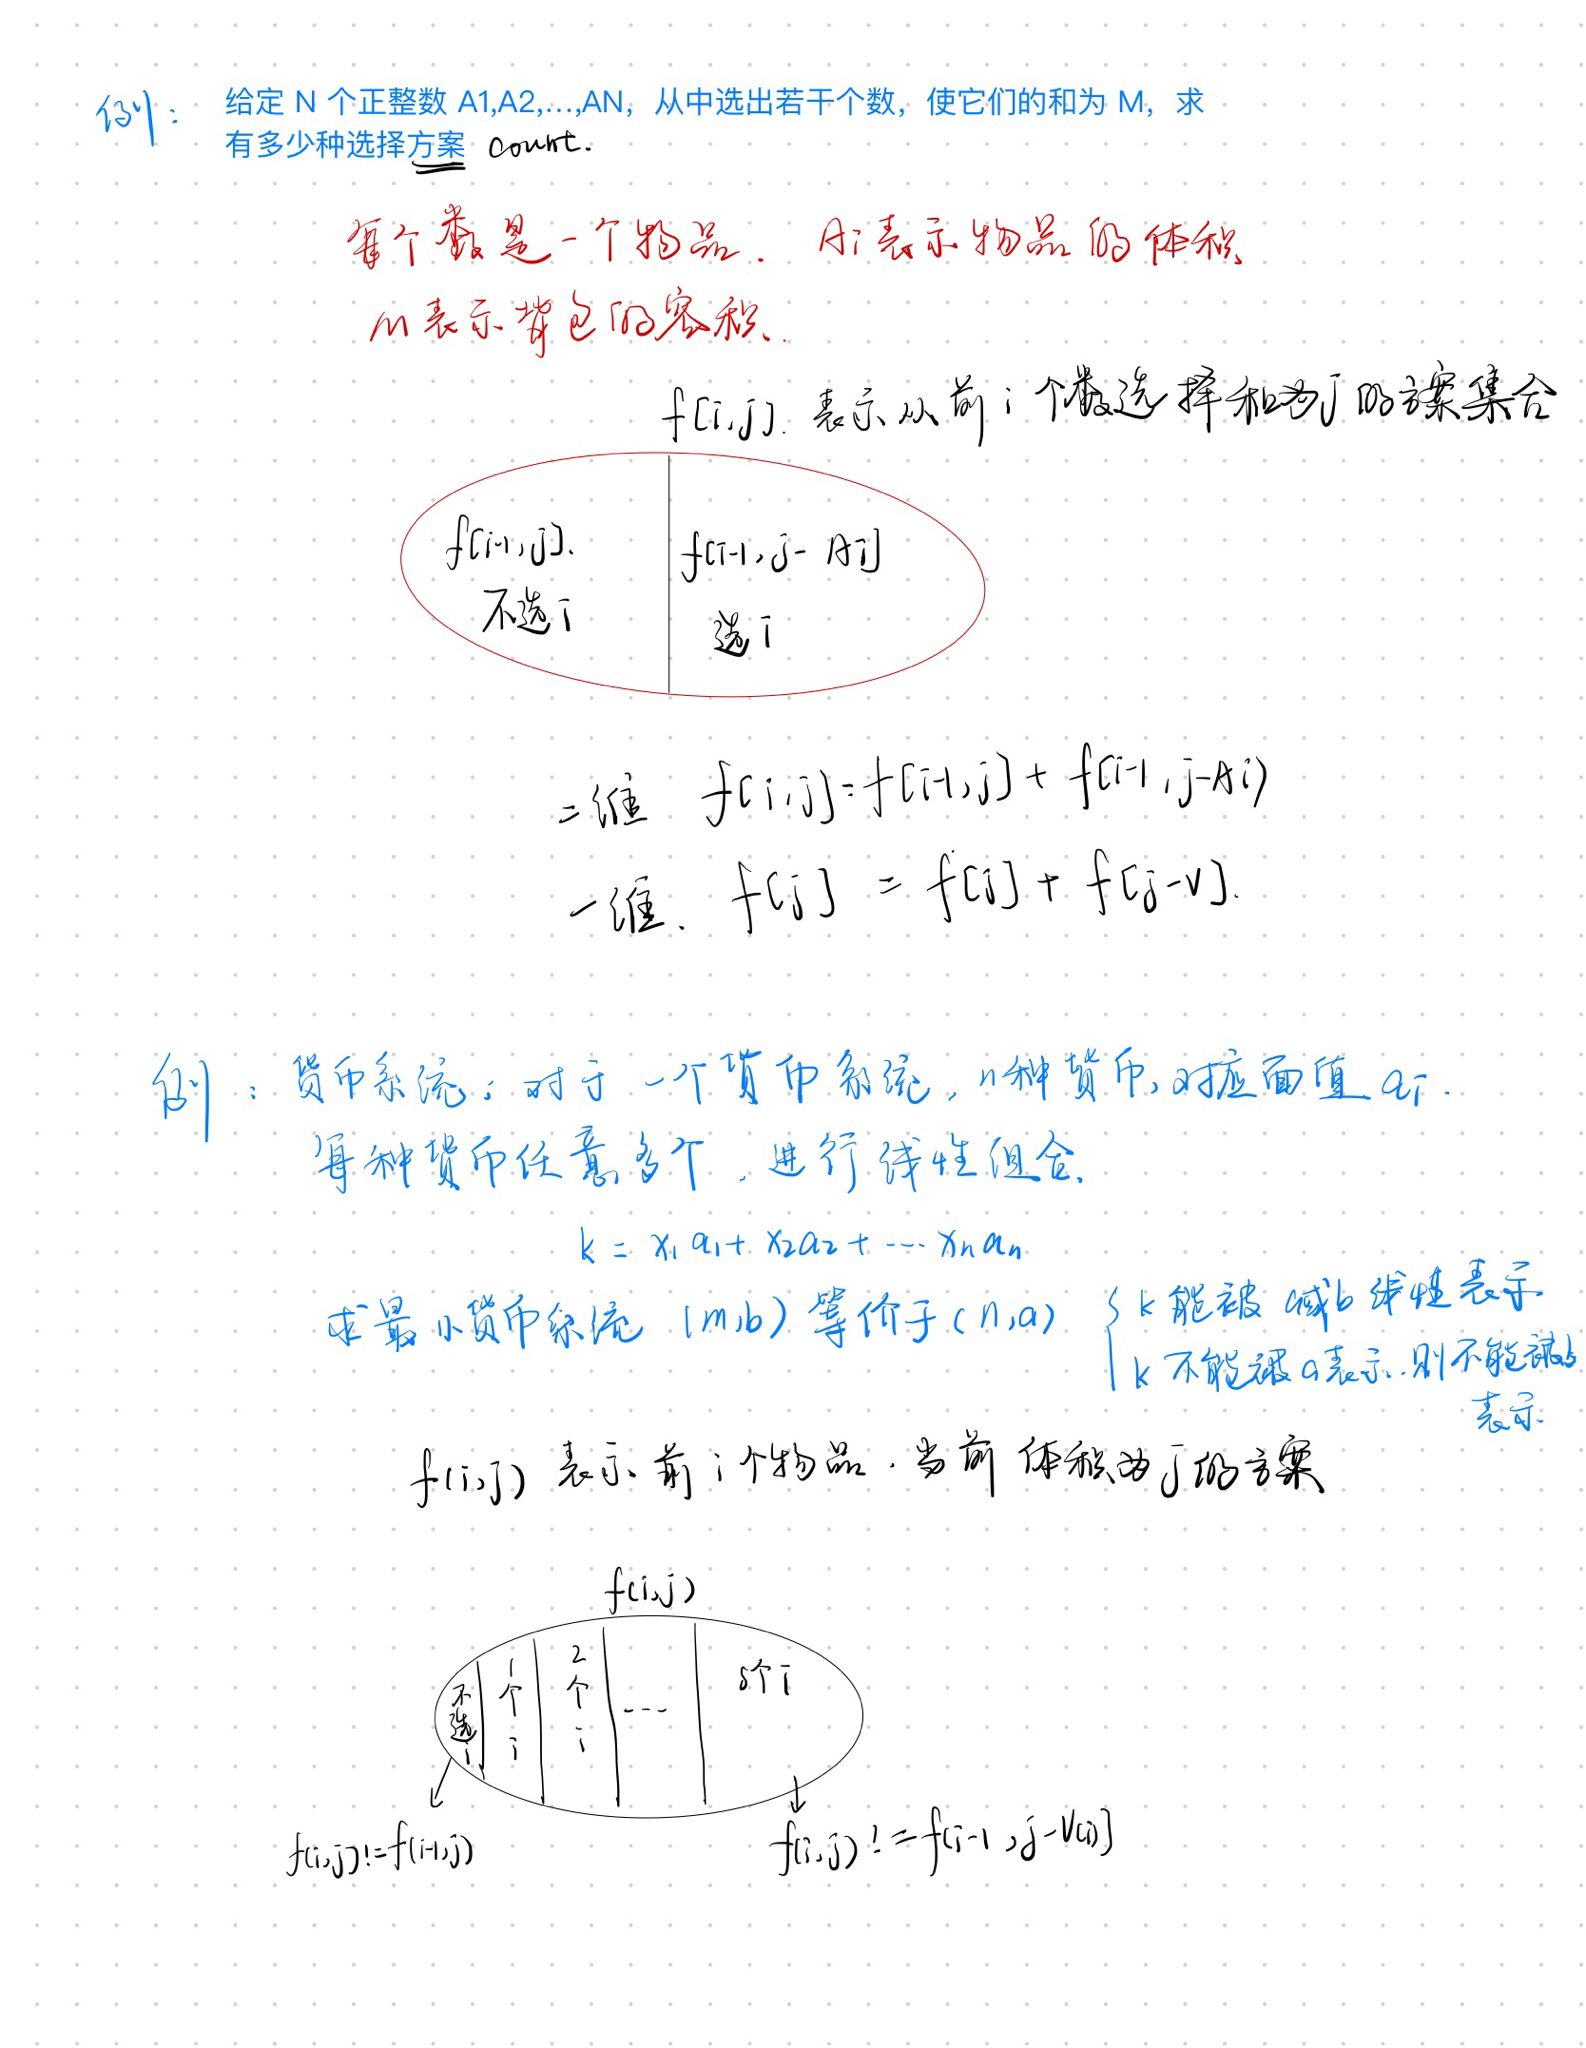 例：
给定 N 个正整数 A1,A2,...,AN，从中选出若干个数，使它们的和为 M，求
有多少种选择方案 count.
每个数是一个物品. Ai表示物品的体积
M表示背包的容积.
f[i,j]. 表示从前i个数选择和为j的方案集合
f[i-1,j].
不选i
f[i-1,j-Ai]
选i
二维 f[i,j]=f[i-1,j]+f[i-1,j-Ai)
一维. f[j] = f[j]+f[j-v].
例：货币系统：对于一个货币系统，n种货币，对应面值ai.
每种货币任意多个，进行线性组合.
k = x1a1+x2a2+...xnan
求最小货币系统 (m,b) 等价于(n,a)
k能被 或b线性表示
k不能被a表示.则不能被b
表示
f(i,j) 表示前i个物品.当前体积为j的方案
f(i,j)
不选i
1个i
2个i
...
s个i
f(i,j)!=f(i-1,j)
f(i,j)!=f(i-1,j-V(i)]